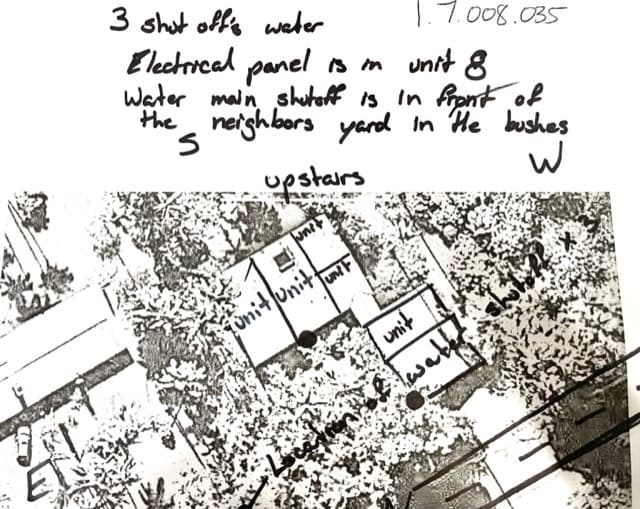 3 shut off's water
1.7.008.035
Electrical panel is in unit 8
Water main shutoff is in front of
the neighbors yard in the bushes
S
W
upstairs
unit
unit
unit
unit
unit
Location of water shutoff x 3
E